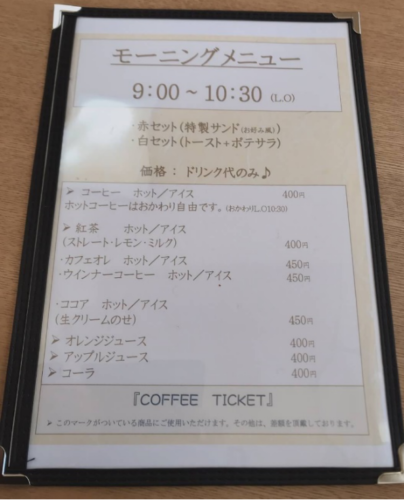 モーニングメニュー
9:00 ~ 10:30 (L.O)
・赤セット(特製サンド(お好み風))
・白セット(トースト+ポテサラ)
価格 : ドリンク代のみ♪
➢ コーヒー ホット/アイス 400円
ホットコーヒーはおかわり自由です。(おかわりL.O10:30)
➢ 紅茶 ホット/アイス
(ストレート・レモン・ミルク) 400円
・カフェオレ ホット/アイス 450円
・ウインナーコーヒー ホット/アイス 450円
・ココア ホット/アイス
(生クリームのせ) 450円
➢ オレンジジュース 400円
➢ アップルジュース 400円
➢ コーラ 400円
『COFFEE TICKET』
➢ このマークがついている商品にご使用いただけます。その他は、差額を頂戴しております。